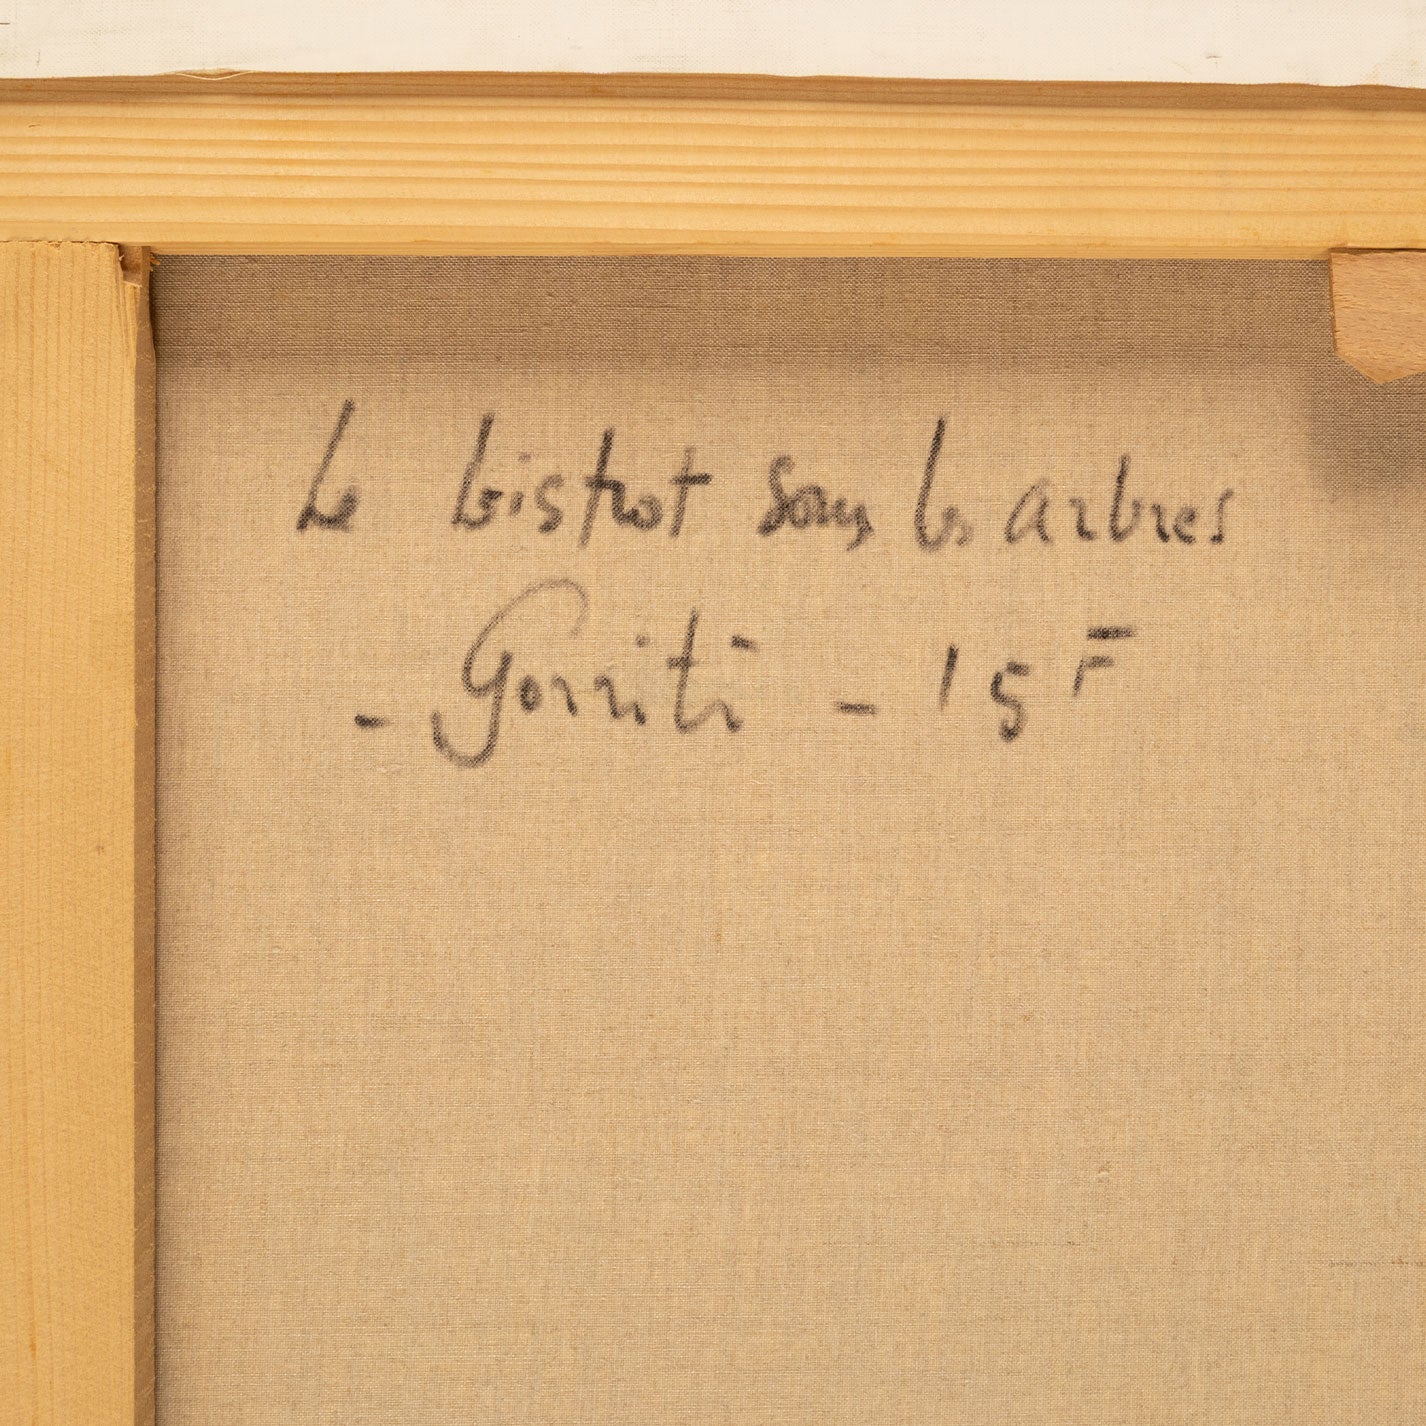 Le bistrot sous les arbres
- Gorriti - 15F